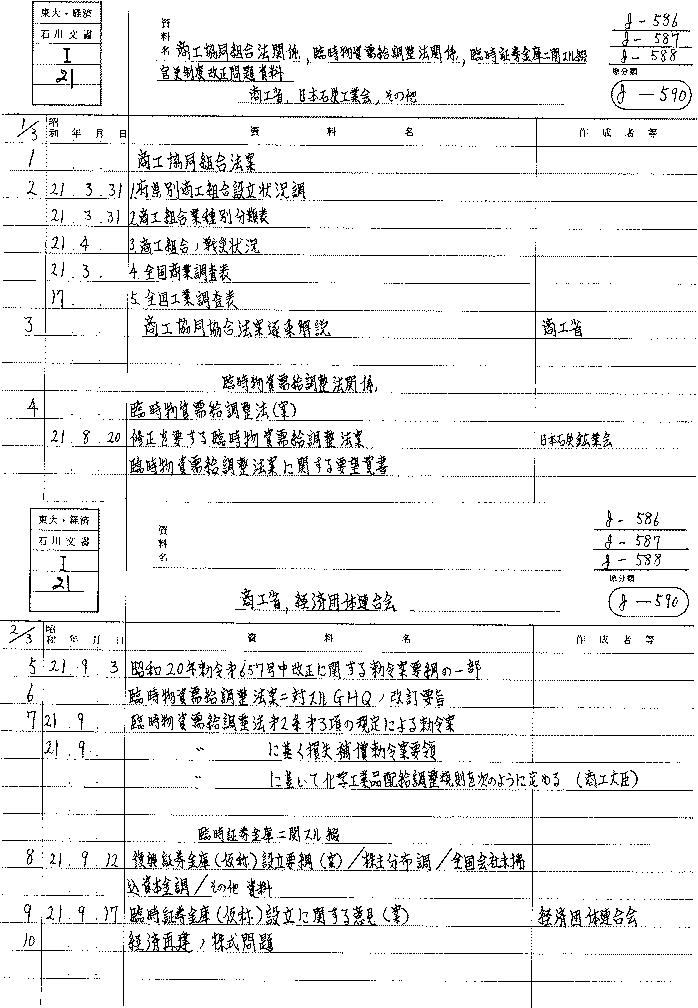 東大・経済
石川文書
I
21
資料名
商工協同組合法関係, 臨時物資需給調整法関係, 臨時証券金庫ニ関スル綴
官吏制度改正問題資料
商工省, 日本石炭工業会, その他
J-586
J-587
J-588
原分類
J-590
1/3 昭和 年 月 日 資料名 作成者等
1 商工協同組合法案
2 21. 3. 31 1.府県別商工組合設立状況調
21. 3. 31 2.商工組合業種別分類表
21. 4. 3.商工組合ノ戦災状況
21. 3. 4.全国商業調査表
17. 5.全国工業調査表
3 商工協同協合法案逐条解説 商工省
臨時物資需給調整法関係
4 臨時物資需給調整法(案)
21. 8. 20 修正を要する臨時物資需給調整法案 日本石炭鉱業会
臨時物資需給調整法案に関する要望覚書
東大・経済
石川文書
I
21
資料名
商工省, 経済団体連合会
J-586
J-587
J-588
原分類
J-590
2/3 昭和 年 月 日 資料名 作成者等
5 21. 9. 3 昭和20年勅令第657号中改正に関する勅令案要綱の一部
6 臨時物資需給調整法案ニ対スルGHQノ改訂要旨
7 21. 9. 臨時物資需給調整法第2条第3項の規定による勅令案
21. 9. 〃 に基く損失補償勅令案要領
〃 に基いて化学工業品配給調整規則を次のように定める (商工大臣)
臨時証券金庫ニ関スル綴
8 21. 9. 12 復興証券金庫(仮称)設立要綱(案)/株主分布調/全国会社未払
込資本金調/その他資料
9 21. 9. 17 臨時証券金庫(仮称)設立に関する意見(案) 経済団体連合会
10 経済再建ノ株式問題